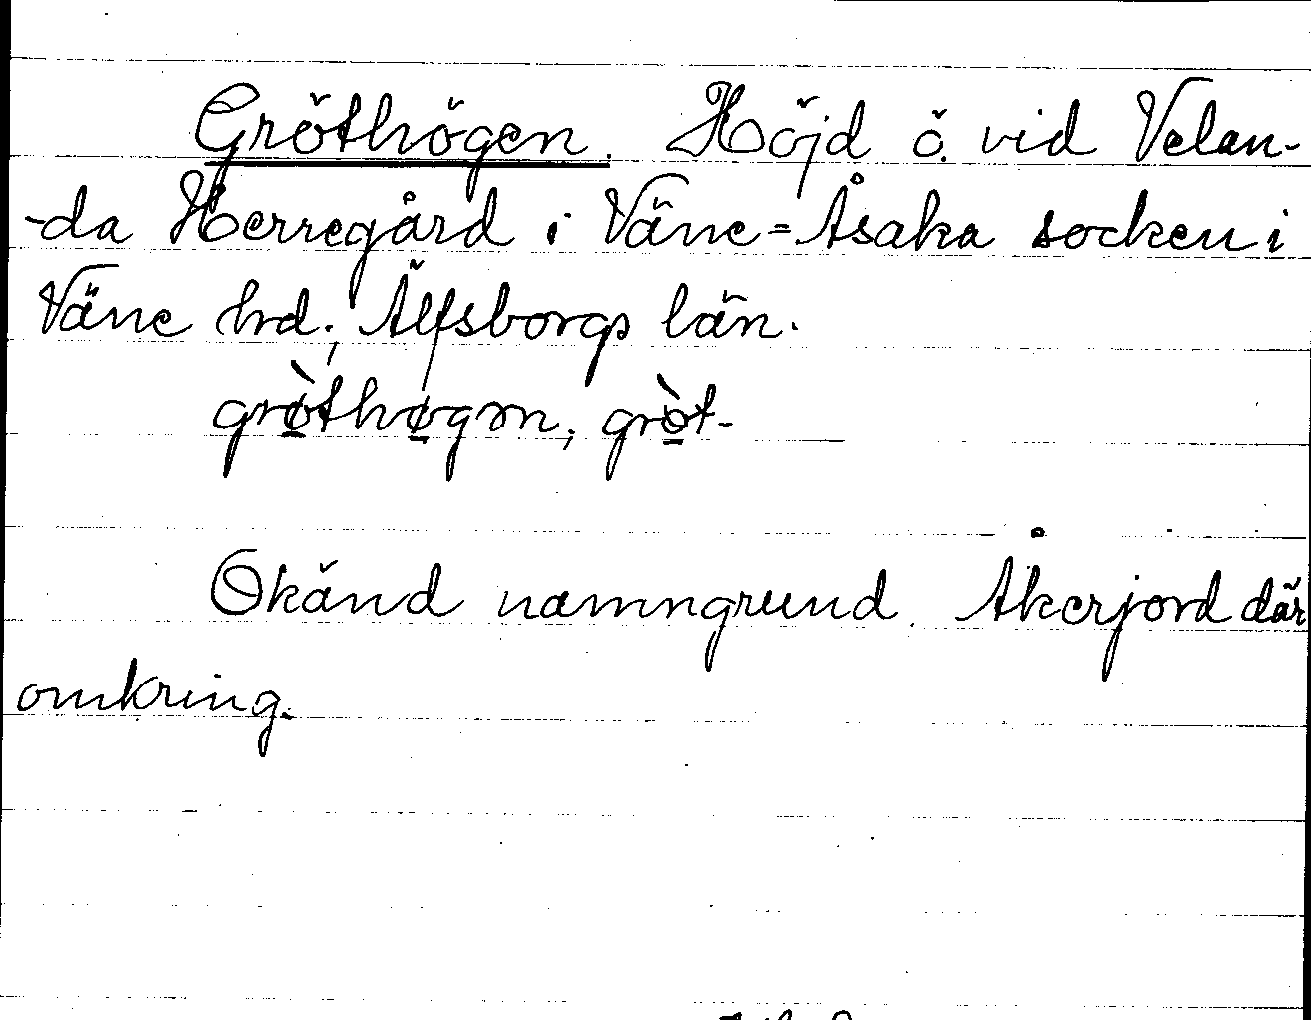 Gröthögen. Höjd ö. vid Velan-
-da Herregård i Väne=Åsaka socken i
Väne hrd; Älfsborgs län.
grø̀thøgən; grø̀t-
Okänd namngrund. Åkerjord där
omkring.